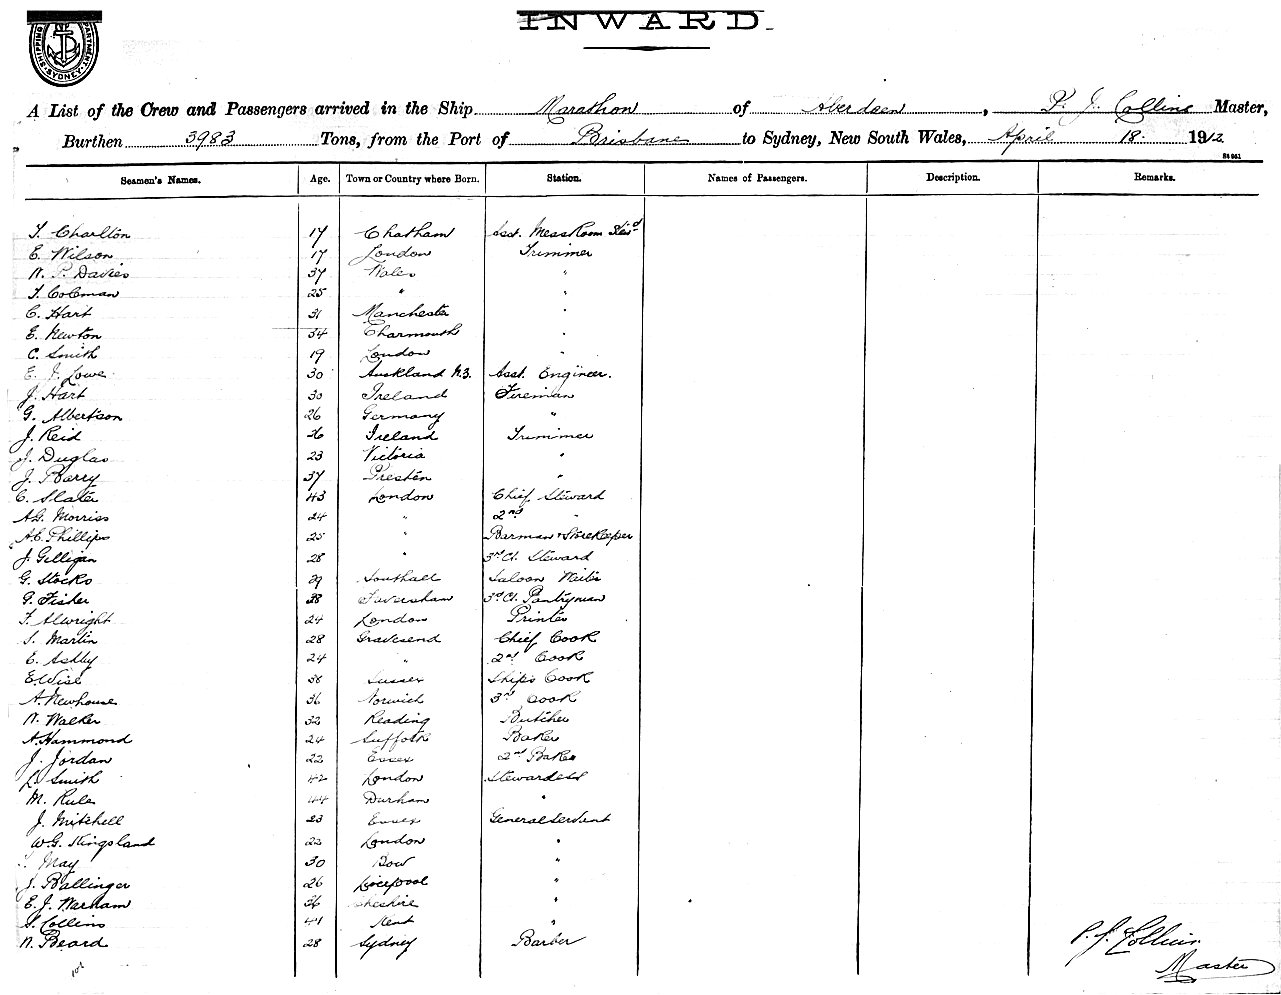 INWARD.
SHIPPING DEPARTMENT SYDNEY
A List of the Crew and Passengers arrived in the Ship Marathon of Aberdeen, P. J. Collins Master,
Burthen 3983 Tons, from the Port of Brisbane to Sydney, New South Wales, April 18 1912.
Seamen's Names. Age. Town or Country where Born. Station. Names of Passengers. Description. Remarks.
T. Charlton 17 Chatham Asst. Mess Room Stewd
E. Wilson 17 London Trimmer
W. P. Davies 37 Wales "
T. Coleman 25 " "
C. Hart 31 Manchester "
E. Newton 34 Charmouth "
C. Smith 19 London "
E. J. Lowe 30 Auckland N.Z. Asst. Engineer.
J. Hart 30 Ireland Fireman
G. Albertson 26 Germany "
J. Reid 36 Ireland Trimmer
J. Duglas 23 Victoria "
J. Barry 37 Preston "
C. Slater 43 London Chief Steward
A.G. Morriss 24 " 2nd "
A.C. Phillips 25 " Barman & Storekeeper
J. Gilligan 28 " 3rd Cl. Steward
G. Stocks 29 Southall Saloon Waiter
G. Fisher 38 Faversham 3rd Cl. Pantryman
F. Allwright 24 London Printer
S. Martin 28 Gravesend Chief Cook
E. Ashby 24 " 2nd Cook
E. Wise 38 Sussex Ships Cook
A. Newhouse 36 Norwich 3rd Cook
W. Walker 32 Reading Butcher
A. Hammond 24 Suffolk Baker
J. Jordan 22 Essex 2nd Baker
L. Smith 42 London Stewardess
M. Rule 44 Durham "
J. Mitchell 23 Essex General Servant
W.G. Kingsland 22 London "
May 30 Bow "
J. Ballinger 26 Liverpool "
E. J. Warham 36 Cheshire "
S. Collins 41 Kent "
W. Beard 28 Sydney Barber
P. J. Collins
Master